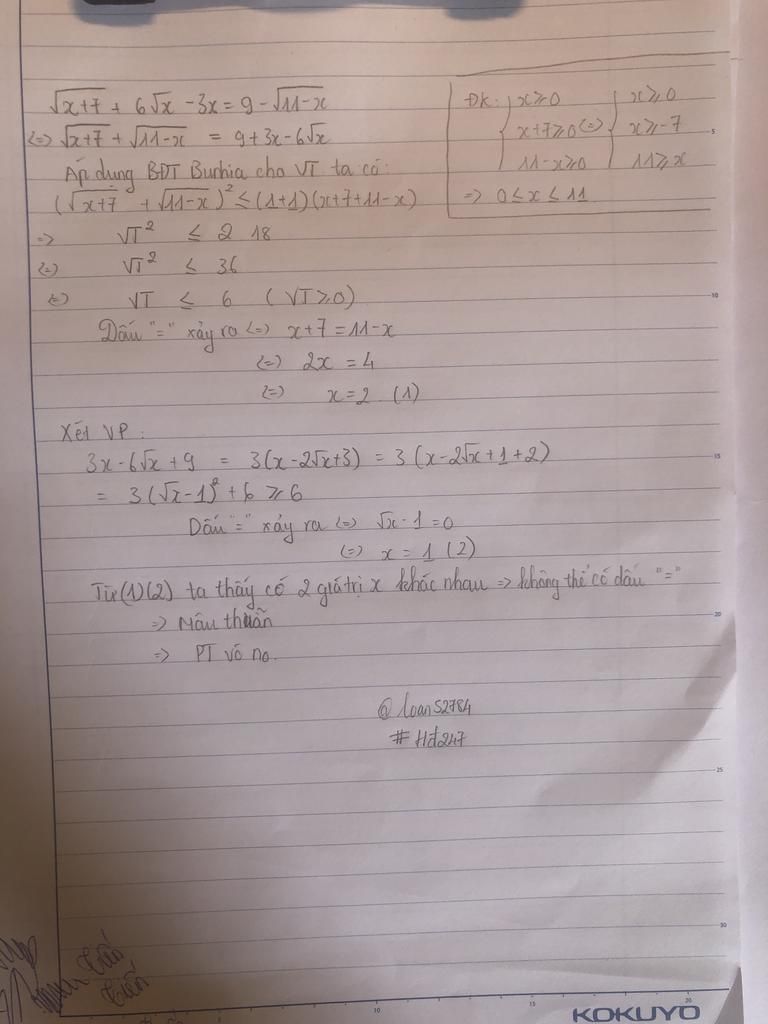 √x+7 + 6√x - 3x = 9 - √11-x
(=) √x+7 + √11-x = 9+3x-6√x
ĐK: { x≥0 { x≥0
x+7≥0 (=) x≥-7
11-x≥0 11≥x
=> 0≤x≤11
Áp dụng BĐT Bunhia cho VT ta có:
(√x+7 + √11-x)² ≤ (1+1)(x+7+11-x)
=> VT² ≤ 2 18
(=) VT² ≤ 36
(=) VT ≤ 6 (VT≥0)
Dấu "=" xảy ra (=) x+7=11-x
(=) 2x = 4
(=) x=2 (1)
Xét VP:
3x-6√x+9 = 3(x-2√x+3) = 3(x-2√x+1+2)
= 3(√x-1)² + 6 ≥ 6
Dấu "=" xảy ra (=) √x-1=0
(=) x=1 (2)
Từ (1)(2) ta thấy có 2 giá trị x khác nhau => không thể có dấu "="
=> Mâu thuẫn
=> PT vô no
@loan52784
#Hđ247
5
10
15
20
25
30
Tiến
Tiến
10 15 20
KOKUYO